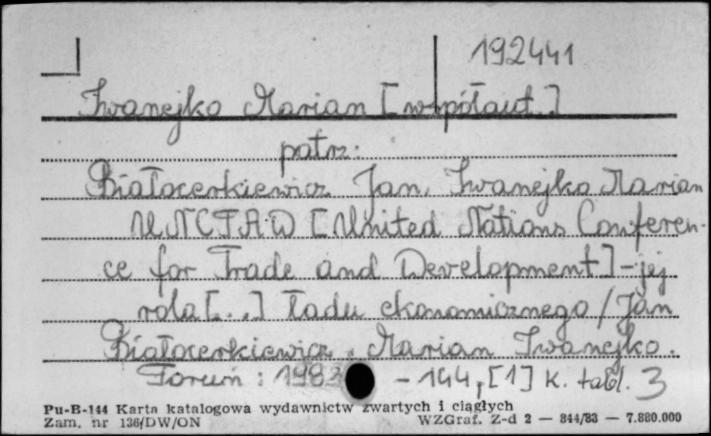 192441
Iwanejko Marian [współaut.]
patrz:
Białocerkiewicz Jan, Iwanejko Marian
UNCTAD [United Nations Conferen-
ce for Trade and Development] - jej
rola [...] ładu ekonomicznego / Jan
Białocerkiewicz, Marian Iwanejko.
Toruń : 1983 - 144, [1] k. tabl. 3
Pu-B-144 Karta katalogowa wydawnictw zwartych i ciągłych
Zam. nr 136/DW/ON WZGraf. Z-d 2 — 844/83 — 7.880.000